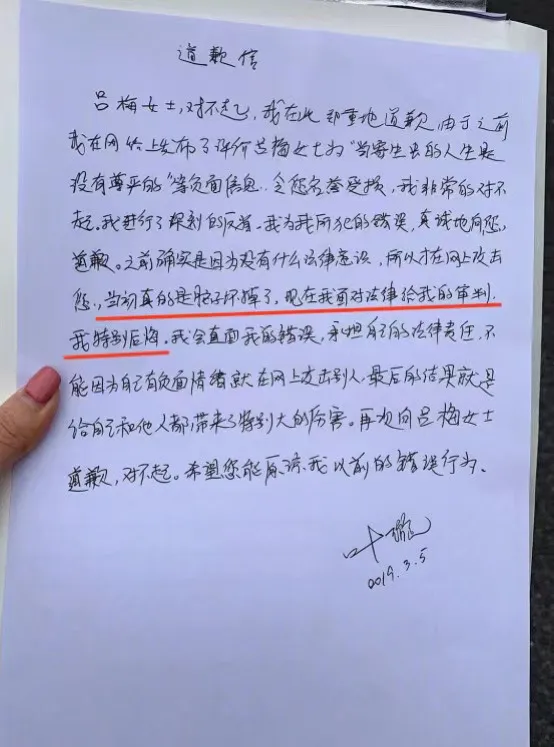 道歉信
吕梅女士,对不起,我在此郑重地道歉,由于之前
我在网络上发布了评价吕梅女士为“当寄生虫的人生是
没有尊严的”等负面信息,令您名誉受损,我非常的对不
起。我进行了深刻的反省。我为我所犯的错误,真诚地向您,
道歉。之前确实是因为没有什么法律意识,所以才在网上攻击
您,当初真的是脑子坏掉了,现在我面对法律给我的审判,
我特别后悔。我会直面我的错误,承担自己的法律责任,不
能因为自己有负面情绪就在网上攻击别人,最后的结果就是
给自己和他人都带来了特别大的伤害。再次向吕梅女士
道歉,对不起。希望您能原谅我以前的错误行为。
叶璇
2019.3.5